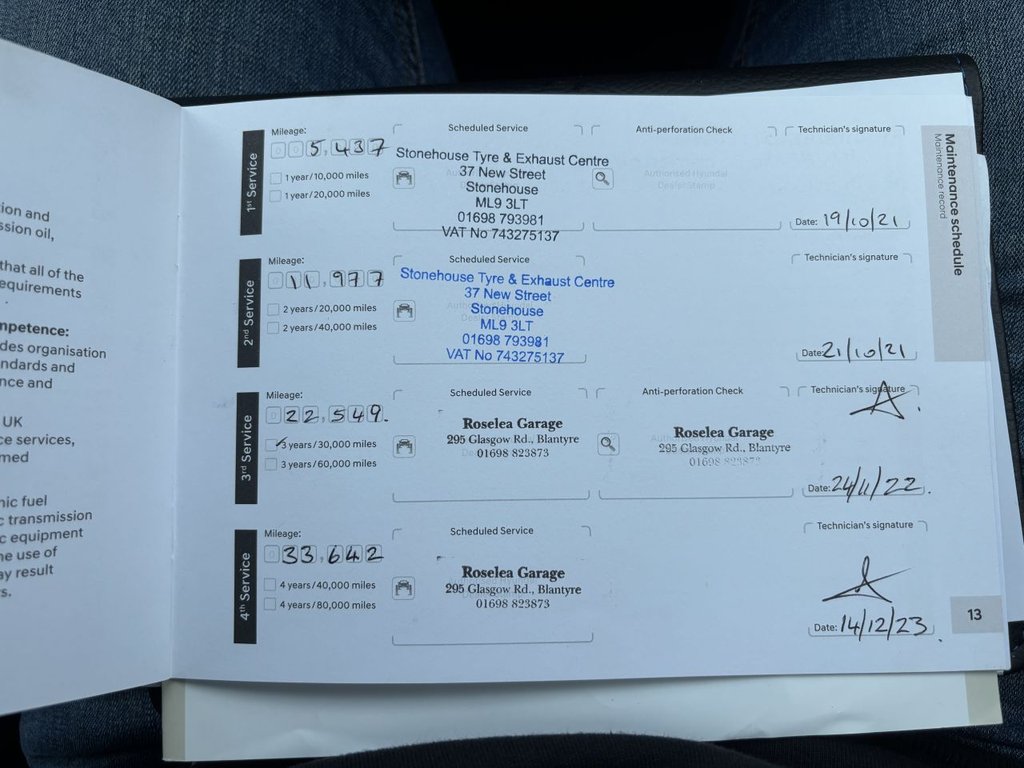 ion and
ssion oil,
that all of the
equirements
mpetence:
des organisation
ndards and
nce and
UK
ce services,
med
nic fuel
c transmission
c equipment
he use of
ay result
s.
Maintenance schedule
Maintenance record
1st Service
Mileage:
5,437
1 year/10,000 miles
1 year/20,000 miles
Scheduled Service
Stonehouse Tyre & Exhaust Centre
37 New Street
Stonehouse
ML9 3LT
01698 793981
VAT No 743275137
Anti-perforation Check
Authorised Hyundai
Dealer Stamp
Technician's signature
Date: 19/10/21
2nd Service
Mileage:
11,977
2 years/20,000 miles
2 years/40,000 miles
Scheduled Service
Stonehouse Tyre & Exhaust Centre
37 New Street
Stonehouse
ML9 3LT
01698 793981
VAT No 743275137
Technician's signature
Date: 21/10/21
3rd Service
Mileage:
22,549.
3 years/30,000 miles
3 years/60,000 miles
Scheduled Service
Roselea Garage
295 Glasgow Rd., Blantyre
01698 823873
Anti-perforation Check
Roselea Garage
295 Glasgow Rd., Blantyre
01698 823873
Technician's signature
Date: 24/11/22.
4th Service
Mileage:
33,642
4 years/40,000 miles
4 years/80,000 miles
Scheduled Service
Roselea Garage
295 Glasgow Rd., Blantyre
01698 823873
Technician's signature
Date: 14/12/23
13